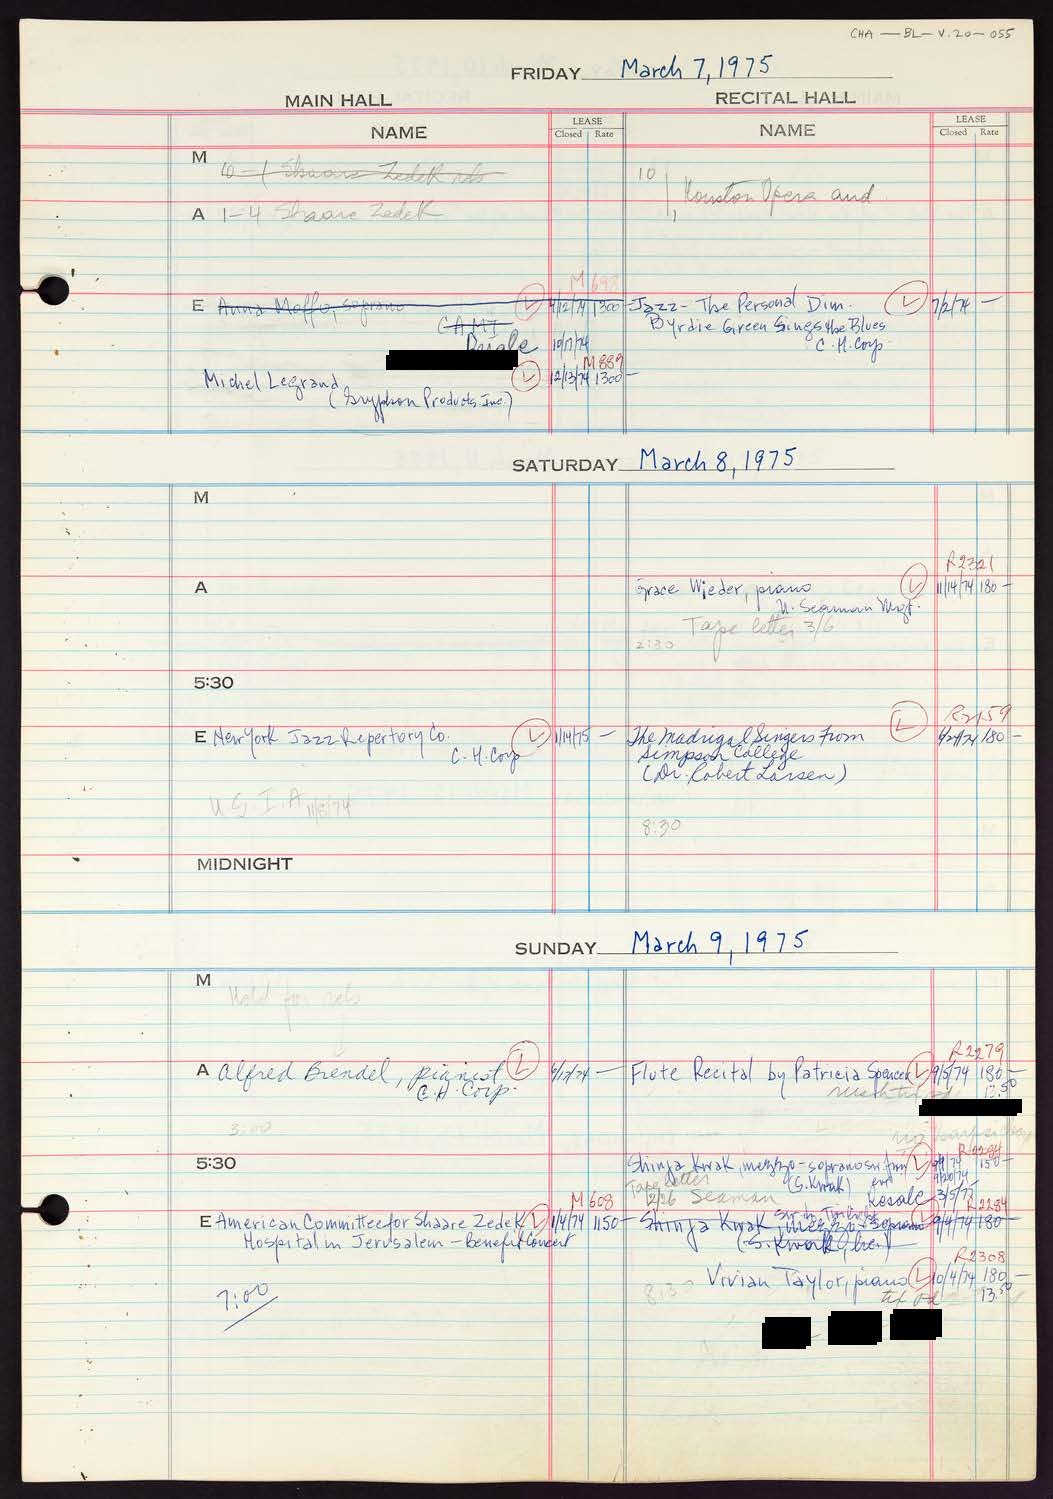 CHA — BL — V.20 — 055
FRIDAY March 7, 1975
MAIN HALL
RECITAL HALL
NAME
LEASE
Closed Rate
NAME
LEASE
Closed Rate
M
10-1 Shaare Zedek rds
10
1, Houston Opera and
A 1-4 Shaare Zedek
M 698
E Anna Moffo, soprano L 4/12/74 1300-
CAMI
10/17/74
M 889
Michel Legrand L 12/13/74 1300-
(Gryphon Products Inc.)
Jazz - The Personal Dim. L 7/2/74 -
Byrdie Green Sings the Blues
C.H. Corp.
SATURDAY March 8, 1975
M
A
R2321
Grace Wieder, piano L 11/14/74 180-
N. Seaman Mgt.
Tape letter 3/6
2:30
5:30
E New York Jazz Repertory Co. L 1/14/75 -
C.H. Corp
U.S.I.A 11/8/74
R2159
The Madrigal Singers From L 180-
Simpson College
(Dr. Robert Larsen)
8:30
MIDNIGHT
SUNDAY March 9, 1975
M
Hold for rds
A Alfred Brendel, pianist L -
C.H. Corp.
3:00
R2279
Flute Recital by Patricia Spencer L 9/5/74 180-
13.50
no
5:30
R2284
Shinja Kwak, mezzo-soprano L 150-
(S. Kwak)
Tape letter
2/26 Seaman
3/5/75
M 608
E American Committee for Shaare Zedek L 1/4/74 1150-
Hospital in Jerusalem - Benefit Concert
7:00
R2284
Shinja Kwak, mezzo-soprano L 9/4/74 180-
R2308
8:30 Vivian Taylor, piano L 10/4/74 180-
13.50